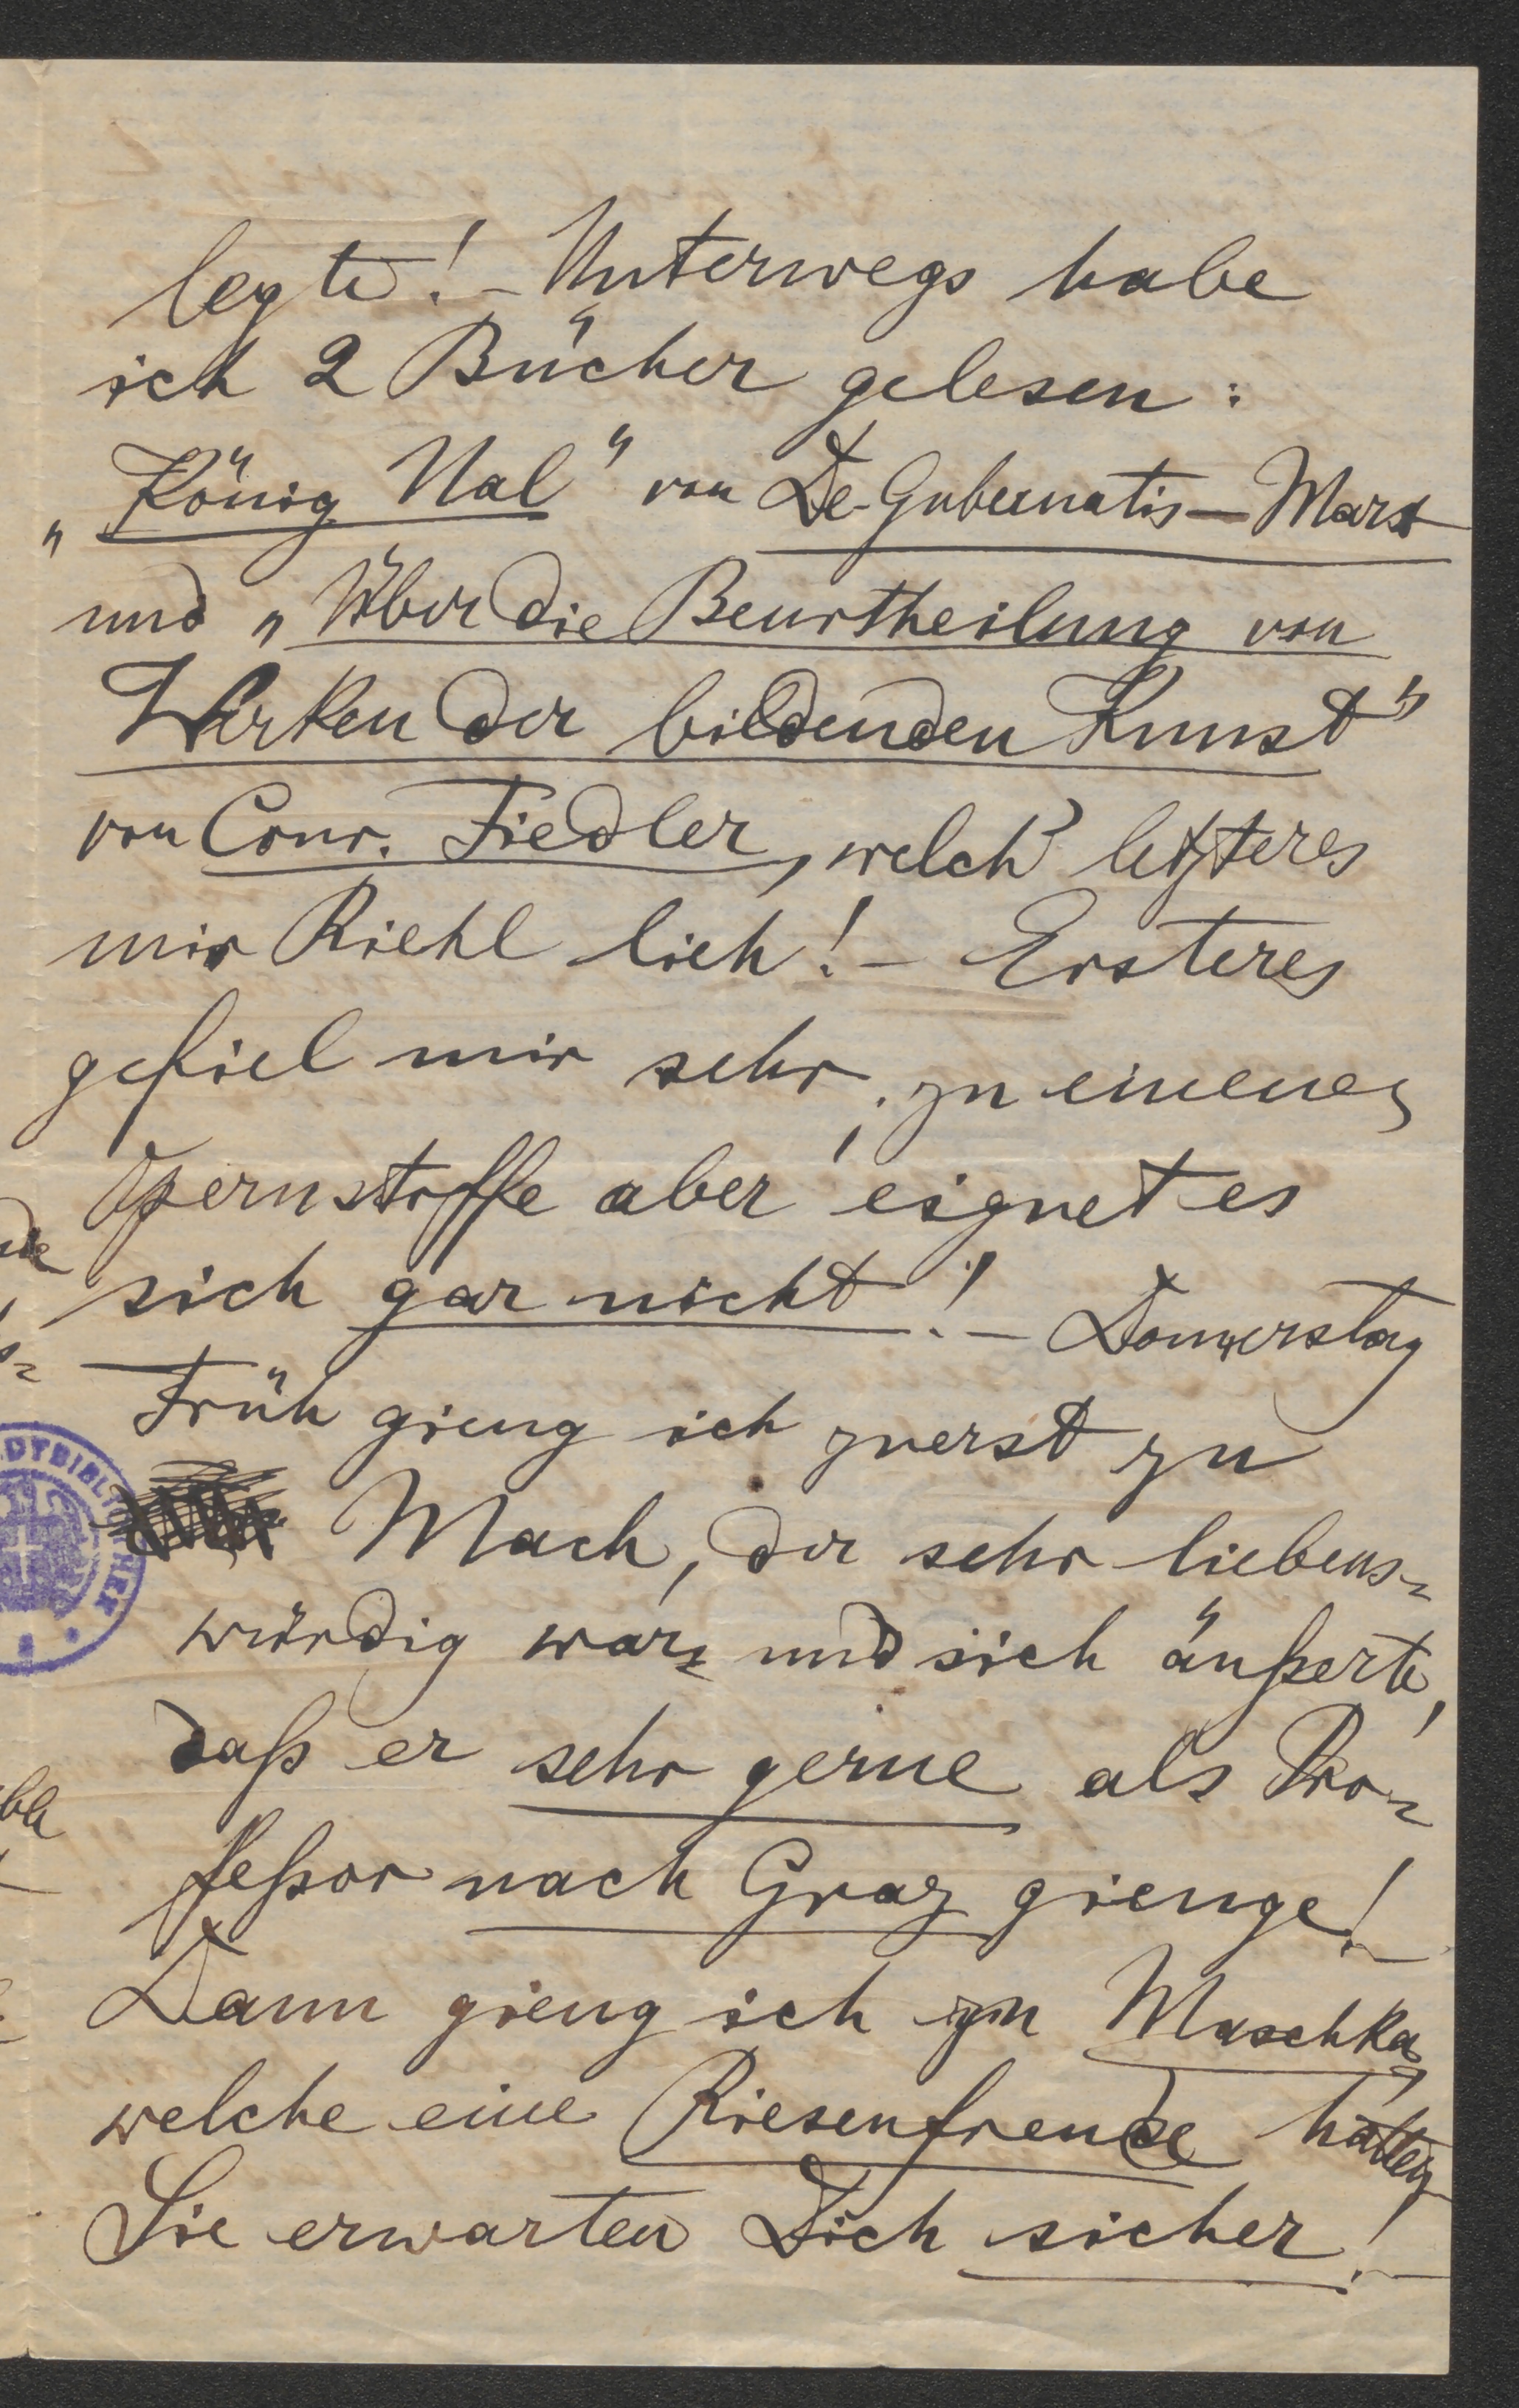 legte! – Unterwegs habe
ich 2 Bücher gelesen:
„König Nal" von De-Gubernatis – Marx
und „Über die Beurtheilung von
Werken der bildenden Kunst"
von Conr. Fiedler, welch' letzteres
mir Riehl lieh! – Ersteres
gefiel mir sehr, zu einem
Opernstoffe aber eignet es
sich gar nicht! – Donnerstag
Früh gieng ich zuerst zu
Mach, der sehr liebens-
würdig war, und sich äußerte,
daß er sehr gerne als Pro-
feßor nach Graz gienge! –
Dann gieng ich zu Maschka,
welche eine Riesenfreude hatten.
Sie erwarten Dich sicher! –